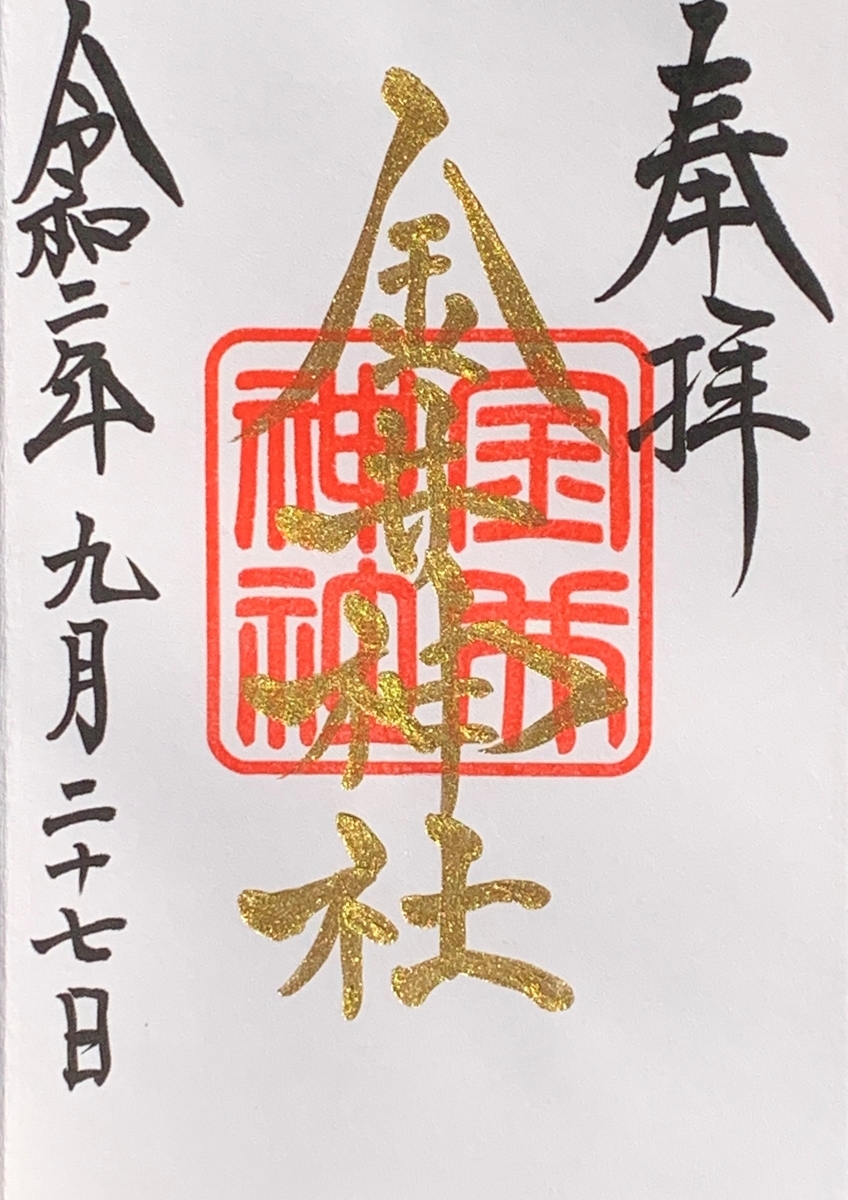 奉拝
金井神社
金井神社
令和二年九月二十七日